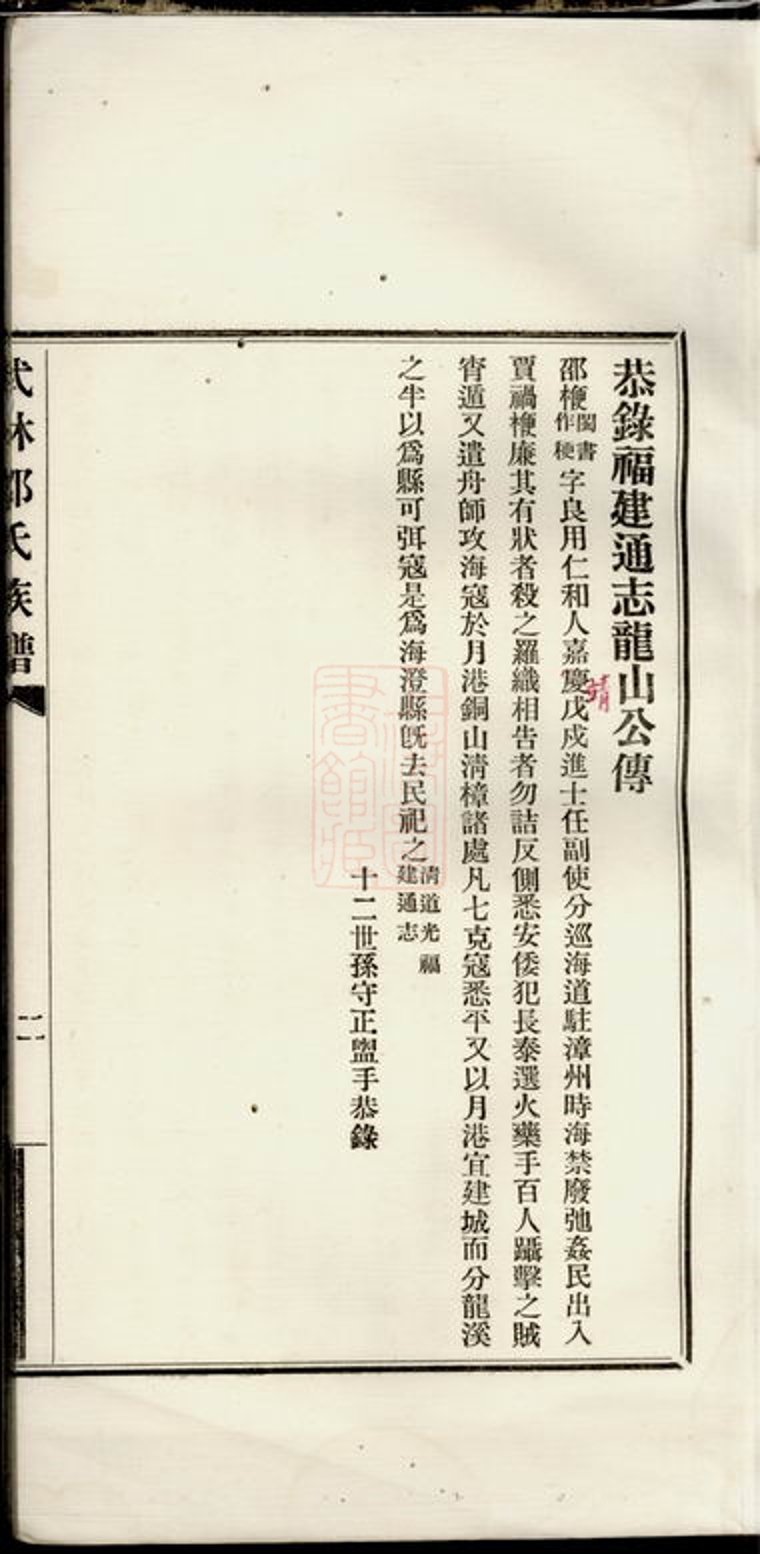 恭錄福建通志龍山公傳
邵楩閩書作梗字良用仁和人嘉慶戊戍進士任副使分巡海道駐漳州時海禁廢弛姦民出入
靖
賈禍楩廉其有狀者殺之羅織相告者勿詰反側悉安倭犯長泰選火藥手百人躡擊之賊
宵遁又遣舟師攻海寇於月港銅山清樟諸處凡七克寇悉平又以月港宜建城而分龍溪
之半以爲縣可弭寇是爲海澄縣旣去民祀之清道光福建通志
十二世孫守正盥手恭錄
武林邵氏族譜
二